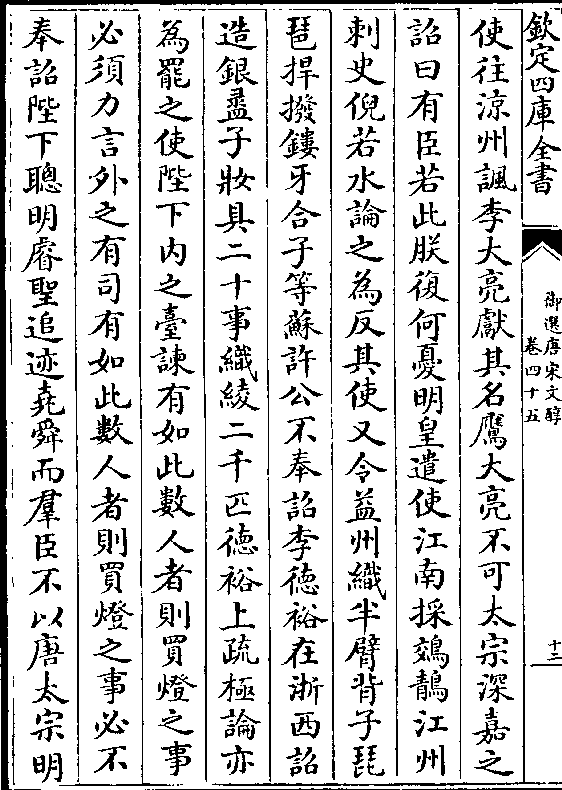 欽定四庫全書
御選唐宋文醇
卷四十五
十二
使往涼州諷李大亮獻其名鷹大亮不可太宗深嘉之
詔曰有臣若此朕復何憂明皇遣使江南採鵁鶄江州
刺史倪若水論之為反其使又令益州織半臂背子琵
琶捍撥鏤牙合子等蘇許公不奉詔李德裕在浙西詔
造銀盝子妝具二十事織綾二千匹德裕上疏極論亦
為罷之使陛下內之臺諫有如此數人者則買燈之事
必須力言外之有司有如此數人者則買燈之事必不
奉詔陛下聰明睿聖追迹堯舜而羣臣不以唐太宗明